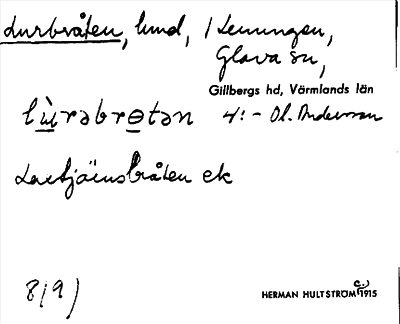 Lurbråten, lund, / Lenungen,
Glava sn,
Gillbergs hd, Värmlands län
lùrəbrɵtən 4:- Ol. Andersson
bråten ek
8/9)
HERMAN HULTSTRÖM 1915